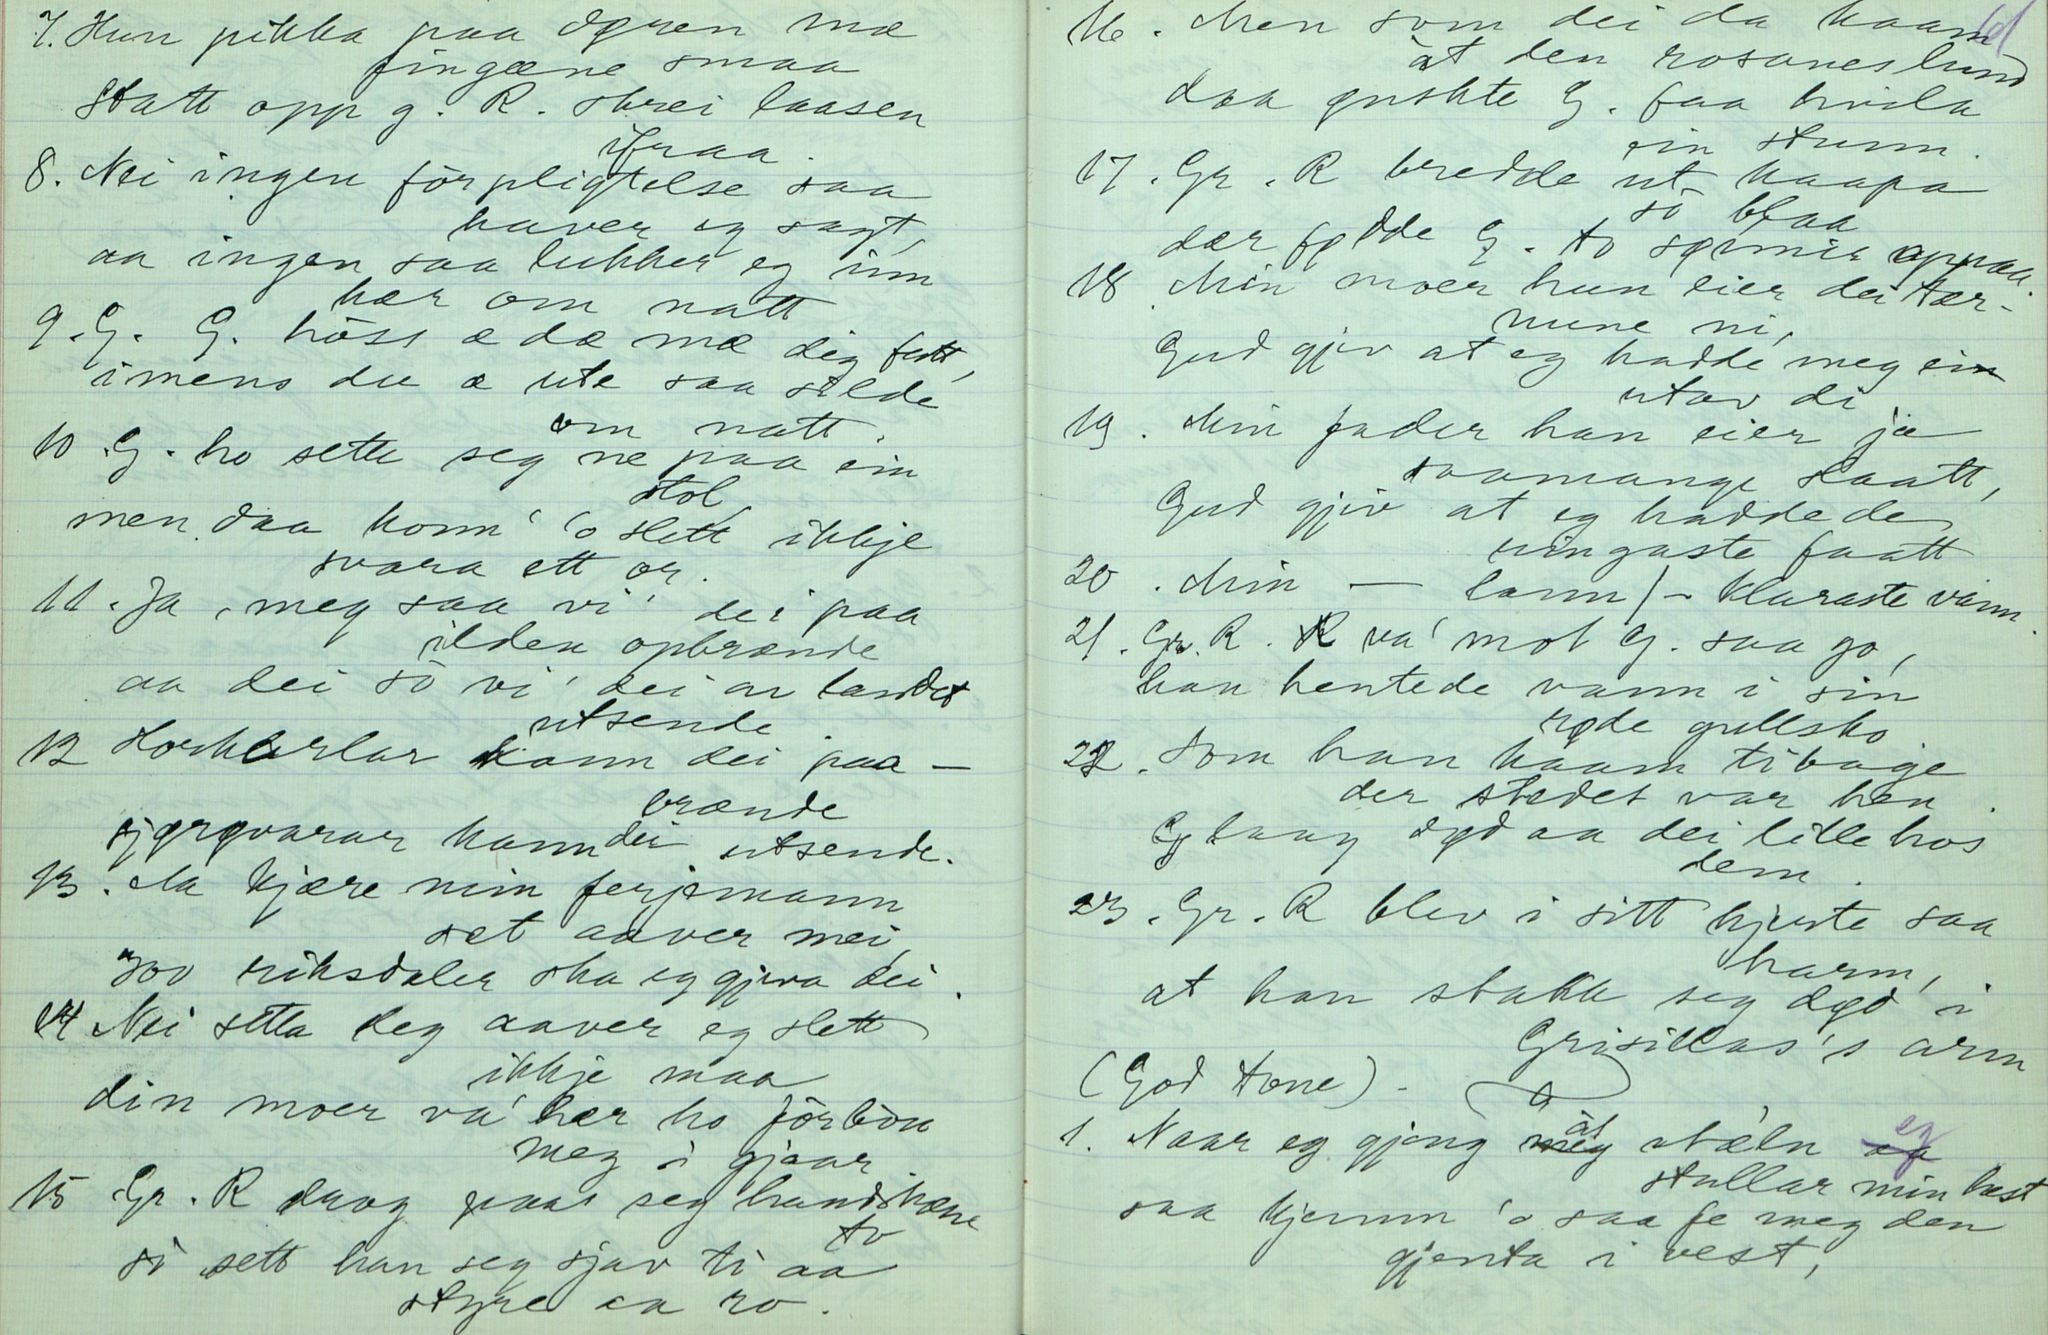 7. Hun pikka paa døren mæ
fingæne smaa
Statt opp g. R. skrei laasen
ifraa.
8. Nei ingen förpligtelse saa
haver eg sagt,
aa ingen saa lukker eg inn
hær om natt
9. G. G. höss æ dæ mæ dig fatt,
imens du æ ute saa silde
om natt.
10. G. ho sette seg ne paa ein
stol,
men daa konn' 'o slett ikkje
svara ett or.
11. Ja, meg saa vi' dei paa
ilden opbrænde
aa dei sö vi' dei ar landet
utsende
12 Horkarlar kann dei paa –
brænde
sjørøvarar kann dei utsende.
13. Aa kjære min ferjemann
set aaver mei,
300 riksdaler ska eg gjeva dei.
14 Nei setta deg aaver eg slett
ikkje maa
din moer va' hær ho förböu
meg i gjaar.
15 Gr. R drog paa seg handskæne
to
sö sett han seg sjav ti aa
styre aa ro.
16. Men som dei da kaam
åt den rosaneslund
daa ønskte G. faa hvila
ein stunn.
17. Gr. R bredde ut kaapa
si blaa
dær fødde G. to sønnir oppaa.
18 Min moer hun eier dei tær-
nune ni,
Gud gjiv at eg hadde meg ein
utav di
19. Min fader han eier ja
saamange slaatt,
Gud gjiv at eg hadde de
ringaste faatt
20. Min — lann / – klaraste vann.
21. Gr. R. va' mot G. saa go,
han hentede vann i sin
røde gullsko
22. Som han kaam tibage
der stedet var hen.
G laag død aa dei lille hos
dem.
23. Gr. R blev i sitt hjerte saa
harm,
at han stakk seg død i
Grisillas's arm
(God tone).
1. Naar eg gjeng åt stæln eg
stullar min hest
saa kjemm 'o saa fe meg den
gjenta i vest,